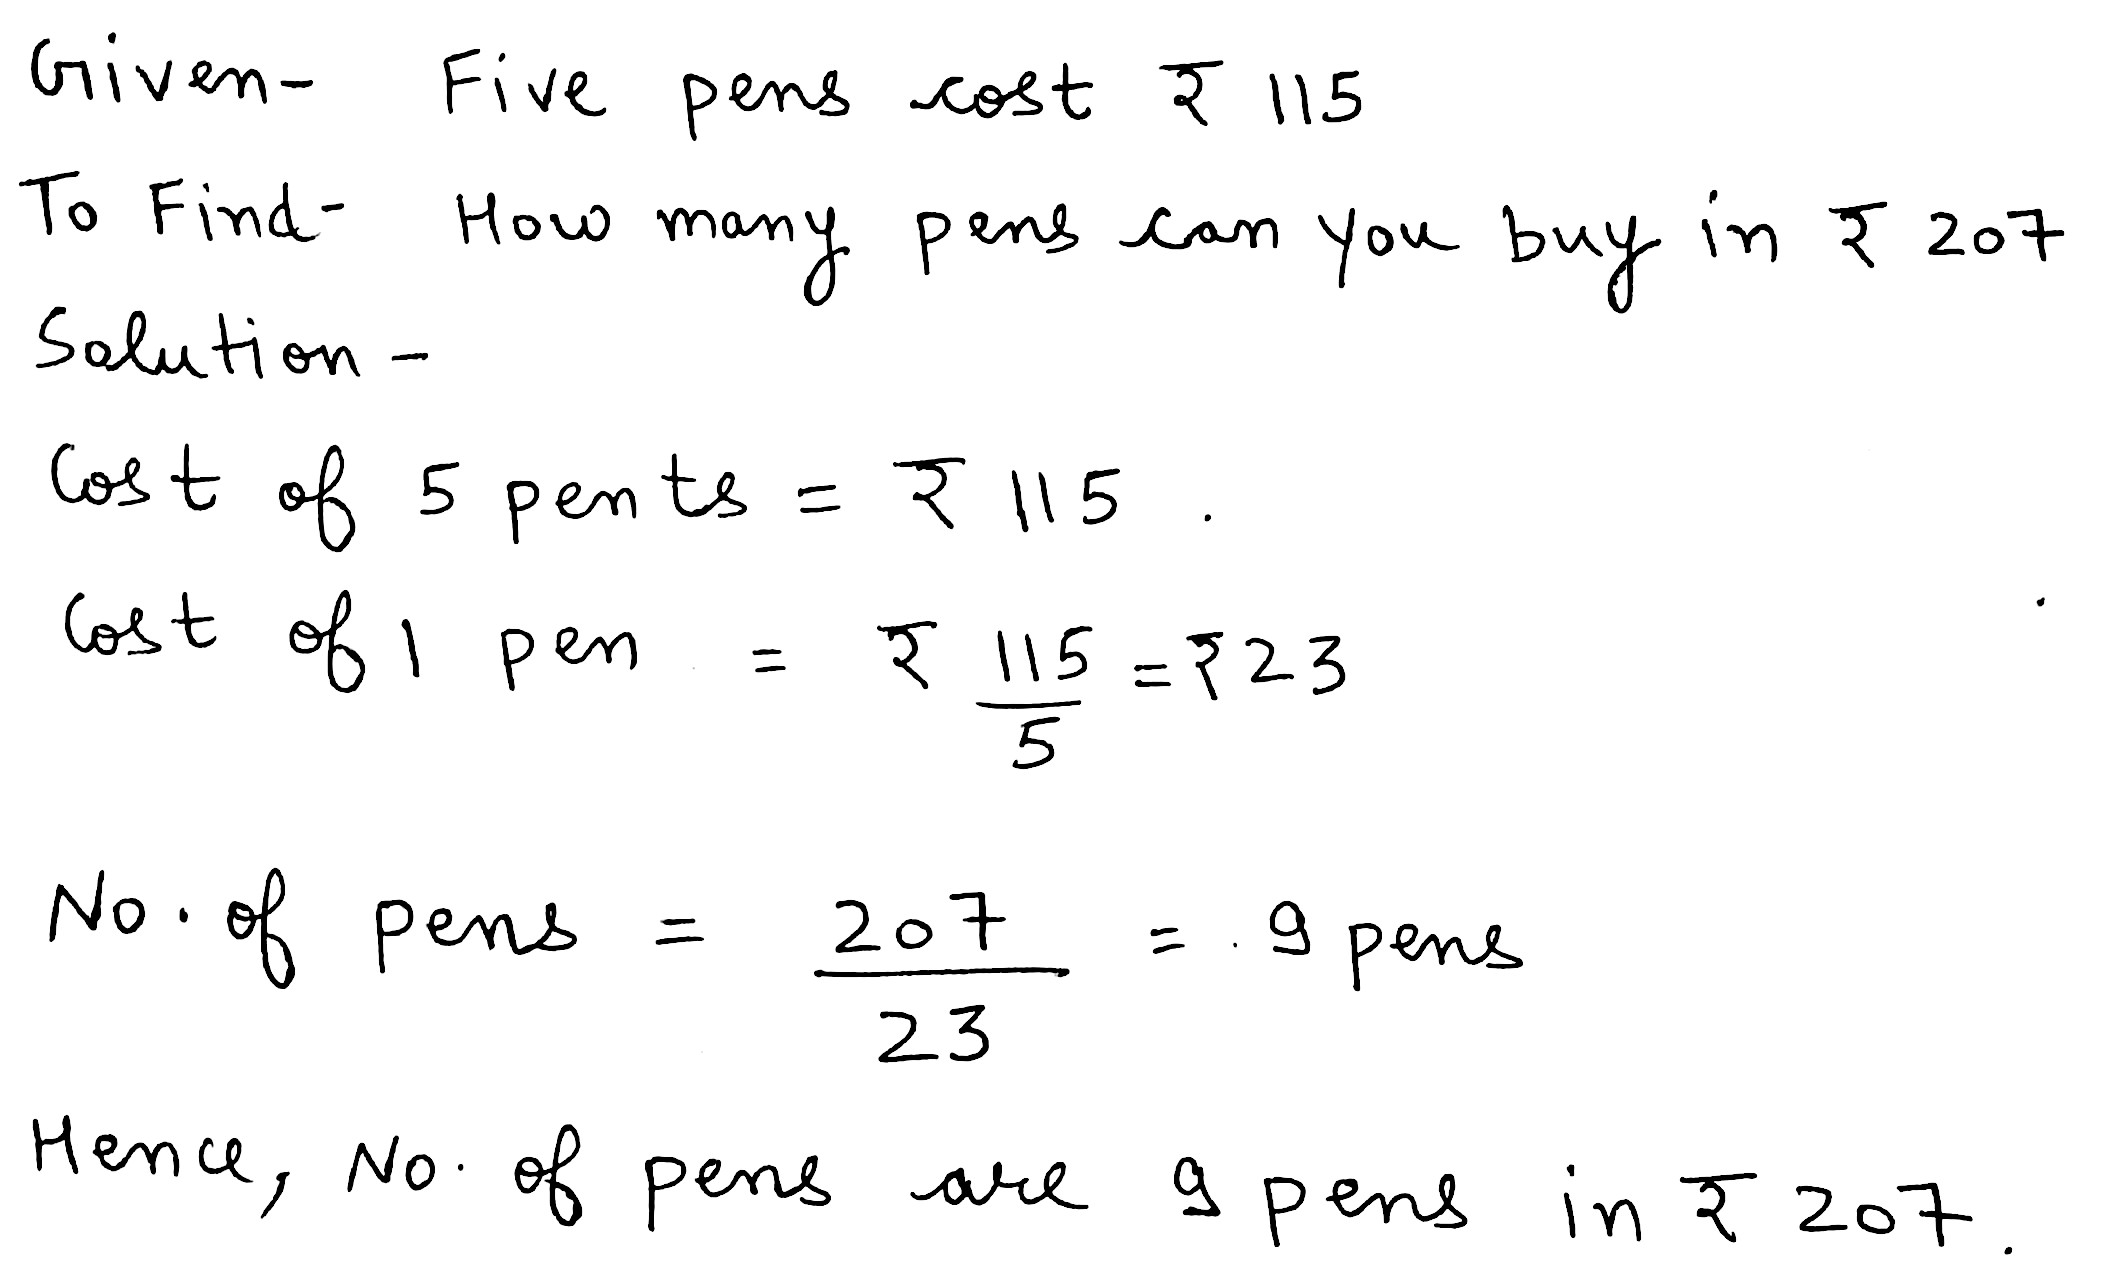 Given- Five pens cost ₹ 115
To Find- How many pens can you buy in ₹ 207
Solution -
Cost of 5 pents = ₹ 115 .
Cost of 1 pen = ₹ 115/5 = ₹ 23
No. of pens = 207/23 = 9 pens
Hence, No. of pens are 9 pens in ₹ 207.